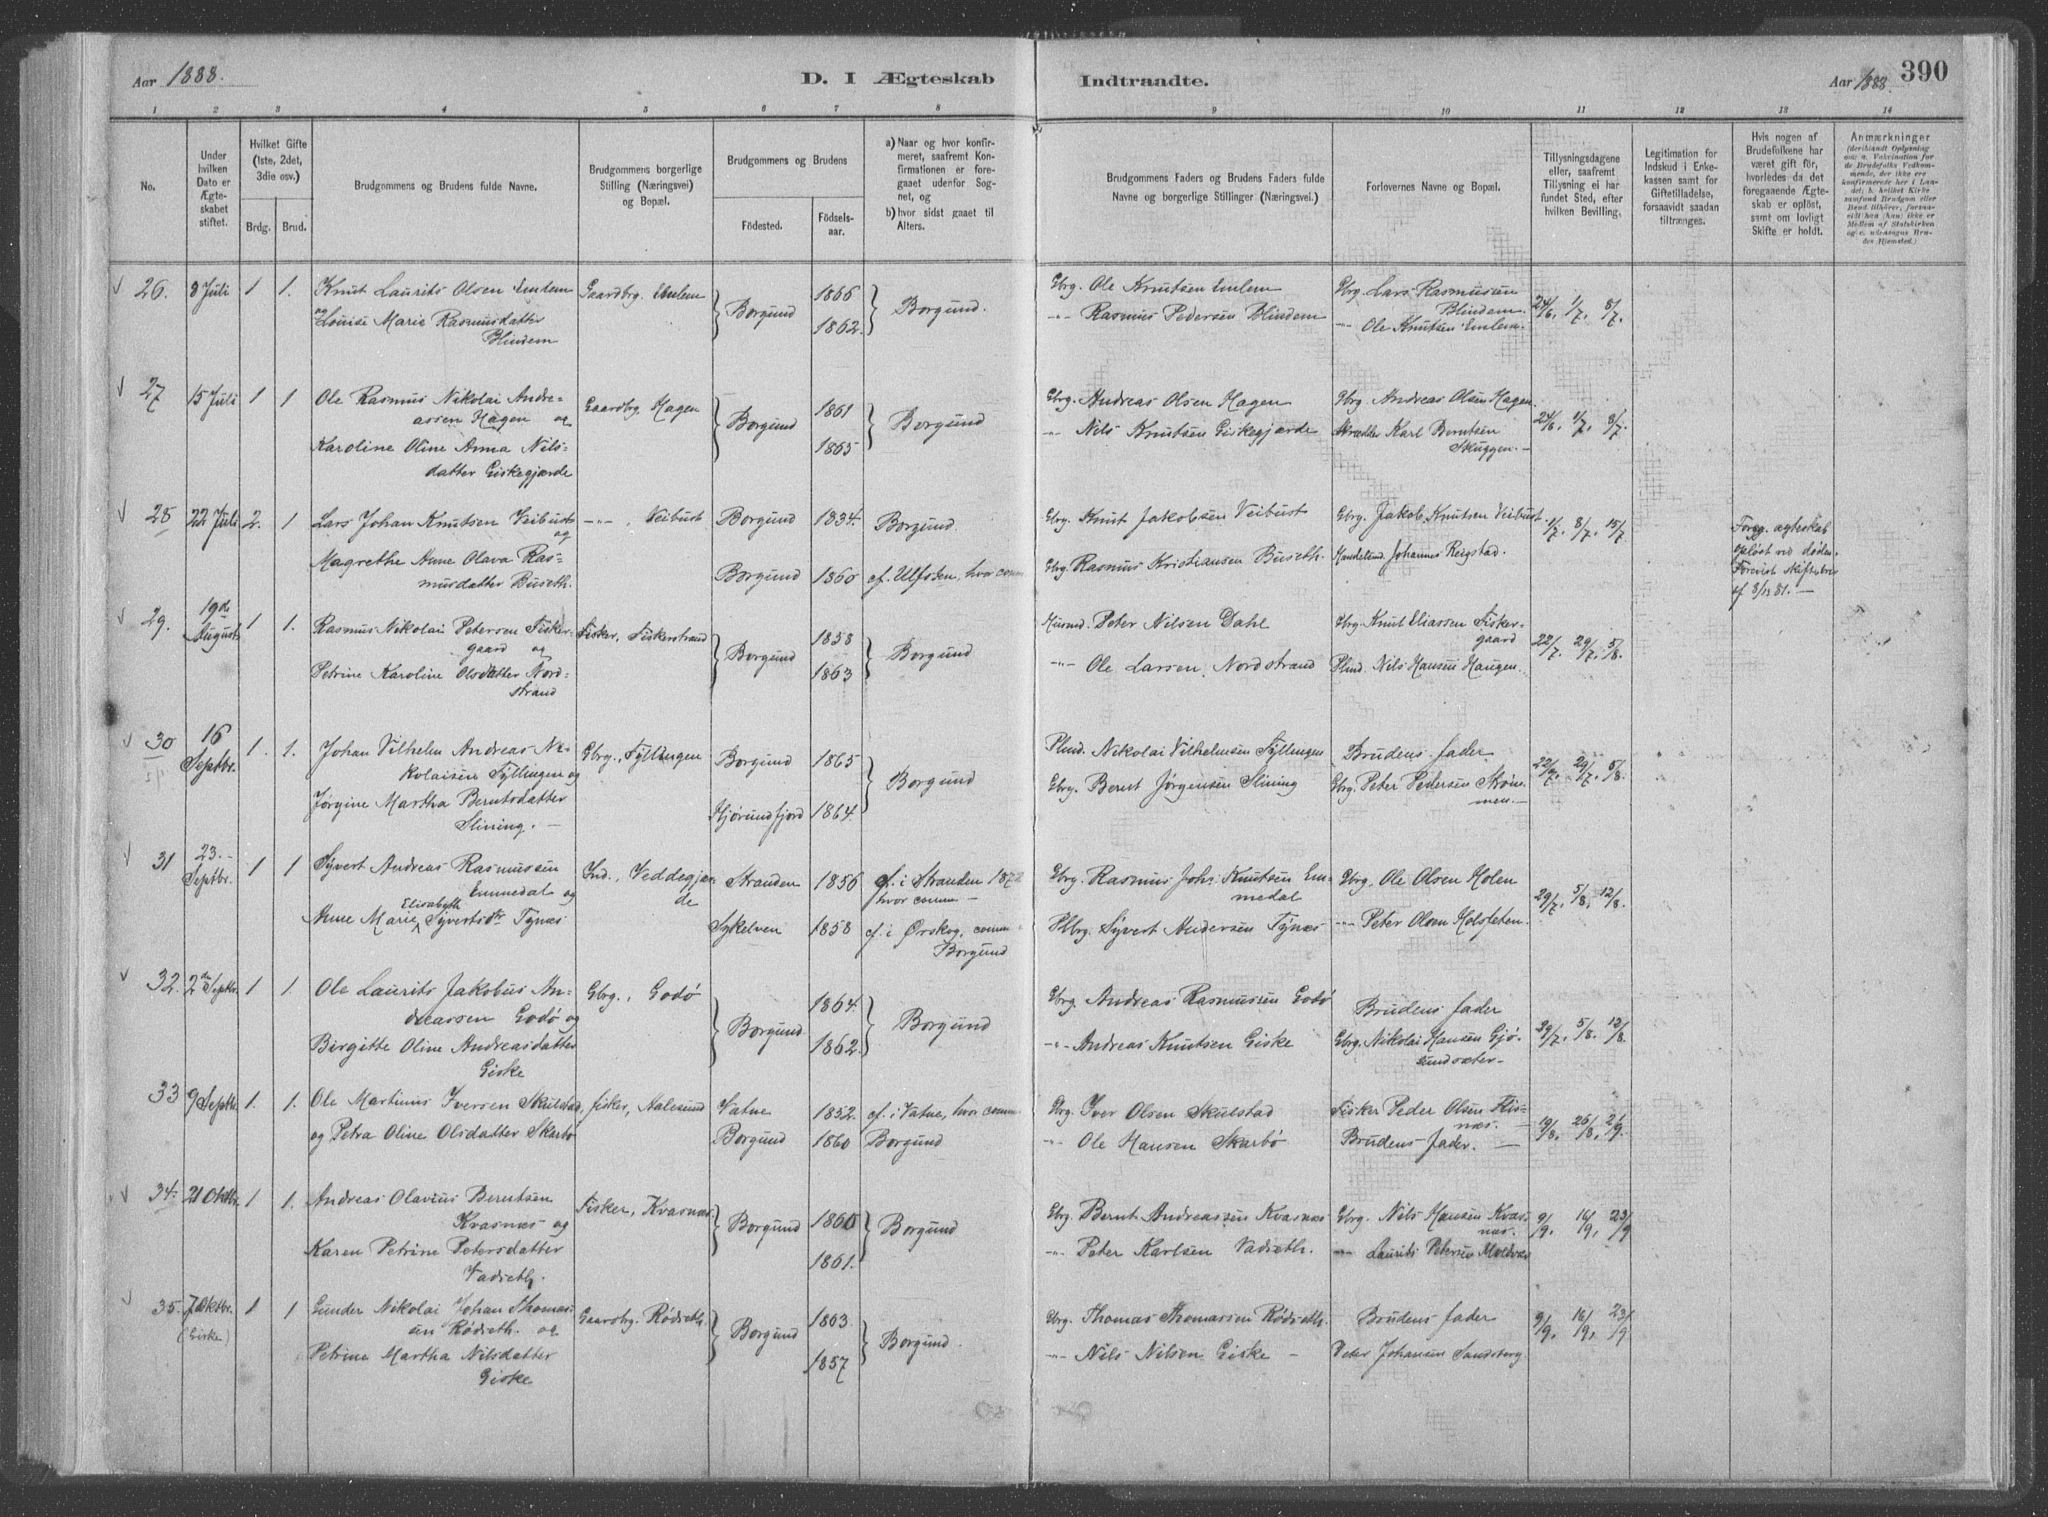 Aar 1888.
D. I Ægteskab
Indtraadte.
Aar 1888.
390
1 2 3 4 5 6 7 8 9 10 11 12 13 14
No.
Under hvilken Dato er Ægteskabet stiftet.
Hvilket Gifte (1ste, 2det, 3die osv.)
Brdg. Brud.
Brudgommens og Brudens fulde Navne.
Brudgommens borgerlige Stilling (Næringsvei) og Bopæl.
Brudgommens og Brudens
Födested. Födselsaar.
a) Naar og hvor konfirmeret, saafremt Konfirmationen er foregaaet udenfor Sognet, og
b) hvor sidst gaaet til Alters.
Brudgommens Faders og Brudens Faders fulde Navne og borgerlige Stillinger (Næringsvei.)
Forlovernes Navne og Bopæl.
Tillysningsdagene eller, saafremt Tillysning ei har fundet Sted, efter hvilken Bevilling.
Legitimation for Indskud i Enkekassen samt for Giftetilladelse, forsaavidt saadan tiltrænges.
Hvis nogen af Brudefolkene har været gift för, hvorledes da det foregaaende Ægteskab er oplöst, samt om lovligt Skifte er holdt.
Anmærkninger
26. 8 Juli 1 1. Knut Laurits Olsen Emlem Gaardbrg. Emlem Borgund 1866 Borgund. Gbrg. Ole Knutsen Emlem Gbrg. Lars Rasmussen Blindem. 24/6, 1/7, 8/7.
og Louise Marie Rasmusdatter Blindem 1862. -"- Rasmus Pedersen Blindem -"- Ole Knutsen Emlem.
27 15 Juli 1 1 Ole Rasmus Nikolai Andreassen Hagen og Gaardbrg. Hagen Borgund 1861 Borgund Gbrg. Andreas Olsen Hagen Gbrg. Andreas Olsen Hagen. 24/6, 1/7, 8/7.
Karoline Oline Anna Nilsdatter Giskegjærde 1865 " Nils Knutsen Giskegjærde Karl Berntsen Skuggen.
28 22 Juli 2. 1 Lars Johan Knutsen Veibust og -"-, Veibust Borgund 1834. Borgund. Gbrg. Knut Jakobsen Veibust Gbrg. Jakob Knutsen Veibust 1/7, 8/7, 15/7. Foreg. ægteskab opløst ved døden.
Magrethe Anne Olava Rasmusdatter Buseth. Borgund 1860 cf. Ulfsten, hvor comm Gbrg. Rasmus Kristiansen Buseth. Handelsmd. Johannes Reigstad. Forevist Skiftebrev af 3/12 81.
29. 19de August 1 1. Rasmus Nikolai Petersen Fiskergaard og Fisker, Fiskerstrand Borgund 1858 Borgund Husmd. Peter Nilsen Dahl Gbrg. Knut Eliassen Fiskergaard 22/7. 29/7. 5/8.
Petrine Karoline Olsdatter Nordstrand 1863 -"- Ole Larsen Nordstrand Plmd. Nils Hansen Haugen.
30 16 Septbr. 1. 1. Johan Vilhelm Andreas Nikolaisen Fyllingen og Gbrg., Fyllingen Borgund 1865 Borgund Plmd. Nikolai Vilhelmsen Fyllingen Brudens fader 22/7. 29/7. 5/8.
Jørgine Martha Berntsdatter Slining. Hjørundfjord 1864. Gbrg. Bernt Jørgensen Slining Gbrg. Peter Pedersen Strømmen.
31 23. Septbr. 1 1 Syvert Andreas Rasmussen Emmedal og Ind., Veddegjærde Stranden 1856 cf. i Stranden 1872 hvor comm Gbrg. Rasmus Johs Knutsen Emmedal Gbrg. Ole Olsen Holen 29/7. 5/8. 12/8.
Anne Marie Elisabeth Syvertsdtr Tynæs Sykelven 1858 cf. i Ørskog, comm. Borgund Syvert Andersen Tynæs -"- Peter Olsen Holsteten.
32. 2den Septbr. 1 1. Ole Laurits Jakobus Andreassen Godø og Gbrg., Godø Borgund 1864. Borgund Gbrg. Andreas Rasmussen Godø Brudens fader 29/7. 5/8. 12/8.
Birgitte Oline Andreasdatter Giske 1862. -"- Andreas Knutsen Giske Gbrg. Nikolai Hansen Gjøsundsæter
33 9 Septbr. 1. 1. Ole Martinus Iversen Skulstad, fisker, Aalesund Vatne 1852 cf. i Vatne, hvor comm Gbrg. Iver Olsen Skulstad Fisker Peder Olsen Flisnæs. 19/8. 26/8. 2/9.
og Petra Oline Olsdatter Skarbø Borgund 1860 Borgund -"- Ole Hansen Skarbø Brudens fader.
34. 21 Oktbr. 1 1. Andreas Olavius Berntsen Kvasnæs og Fisker, Kvasnæs. Borgund 1860 Borgund Gbrg. Bernt Andreassen Kvasnæs Gbrg. Nils Hansen Kvasnæs. 9/9. 16/9. 23/9
Karen Petrine Petersdatter Vadseth. 1861. -"- Peter Karlsen Vadseth. -"- Laurits Petersen
35. 7 Oktbr. (Giske) 1 1 Gunder Nikolai Johan Thomassen Rødseth. og Gaardbrg. Rødseth. Borgund 1863 Borgund. Gbrg. Thomas Thomassen Rødseth. Brudens fader 9/9. 16/9. 23/9
Petrine Martha Nilsdatter Giske 1857 -"- Nils Nilsen Giske Peter Johansen Sandsberg